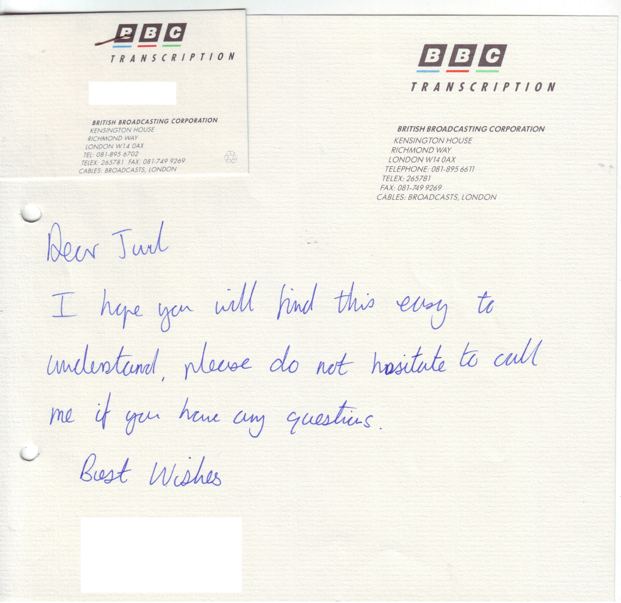 BBC
TRANSCRIPTION
BRITISH BROADCASTING CORPORATION
KENSINGTON HOUSE
RICHMOND WAY
LONDON W14 0AX
TEL: 081-895 6702
TELEX: 265781 FAX: 081-749 9269
CABLES: BROADCASTS, LONDON
BBC
TRANSCRIPTION
BRITISH BROADCASTING CORPORATION
KENSINGTON HOUSE
RICHMOND WAY
LONDON W14 0AX
TELEPHONE: 081-895 6611
TELEX: 265781
FAX: 081-749 9269
CABLES: BROADCASTS, LONDON
Dear
I hope you will find this easy to
understand, please do not hesitate to call
me if you have any questions.
Best Wishes